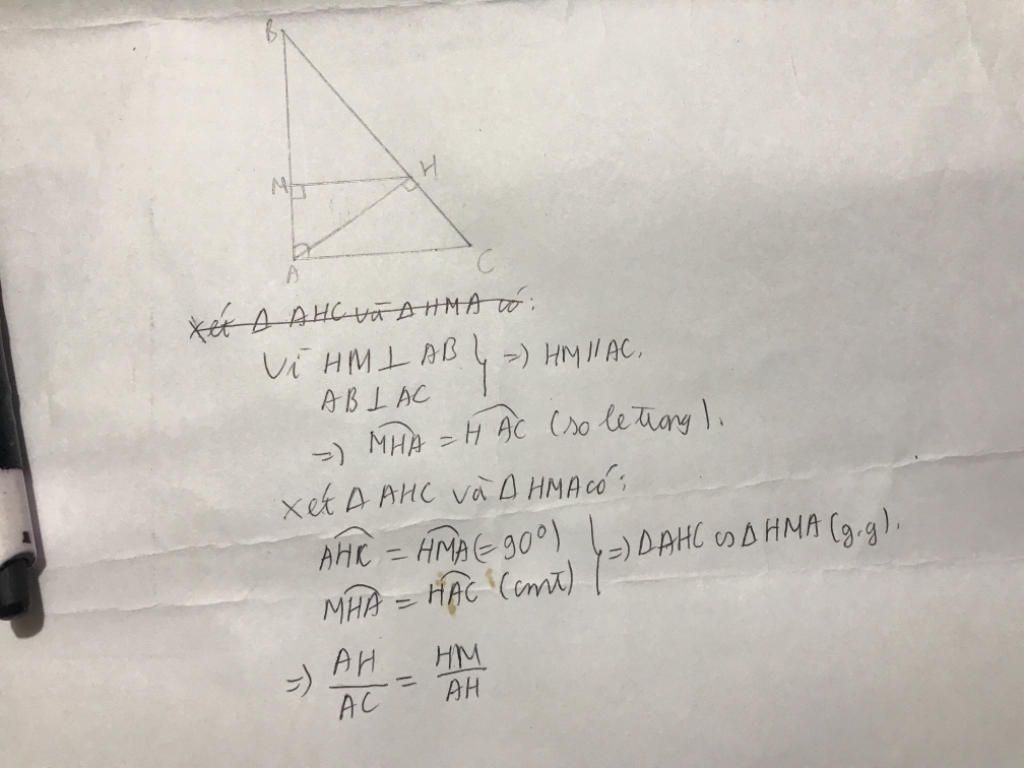 B
M
H
A
C
Xét Δ AHC và Δ HMA có:
Vì HM ⊥ AB
AB ⊥ AC } => HM // AC.
=> MHA = HAC (so le trong).
Xét Δ AHC và Δ HMA có:
AHC = HMA (= 90°)
MHA = HAC (cmt) } => ΔAHC ∽ Δ HMA (g.g).
=> AH/AC = HM/AH